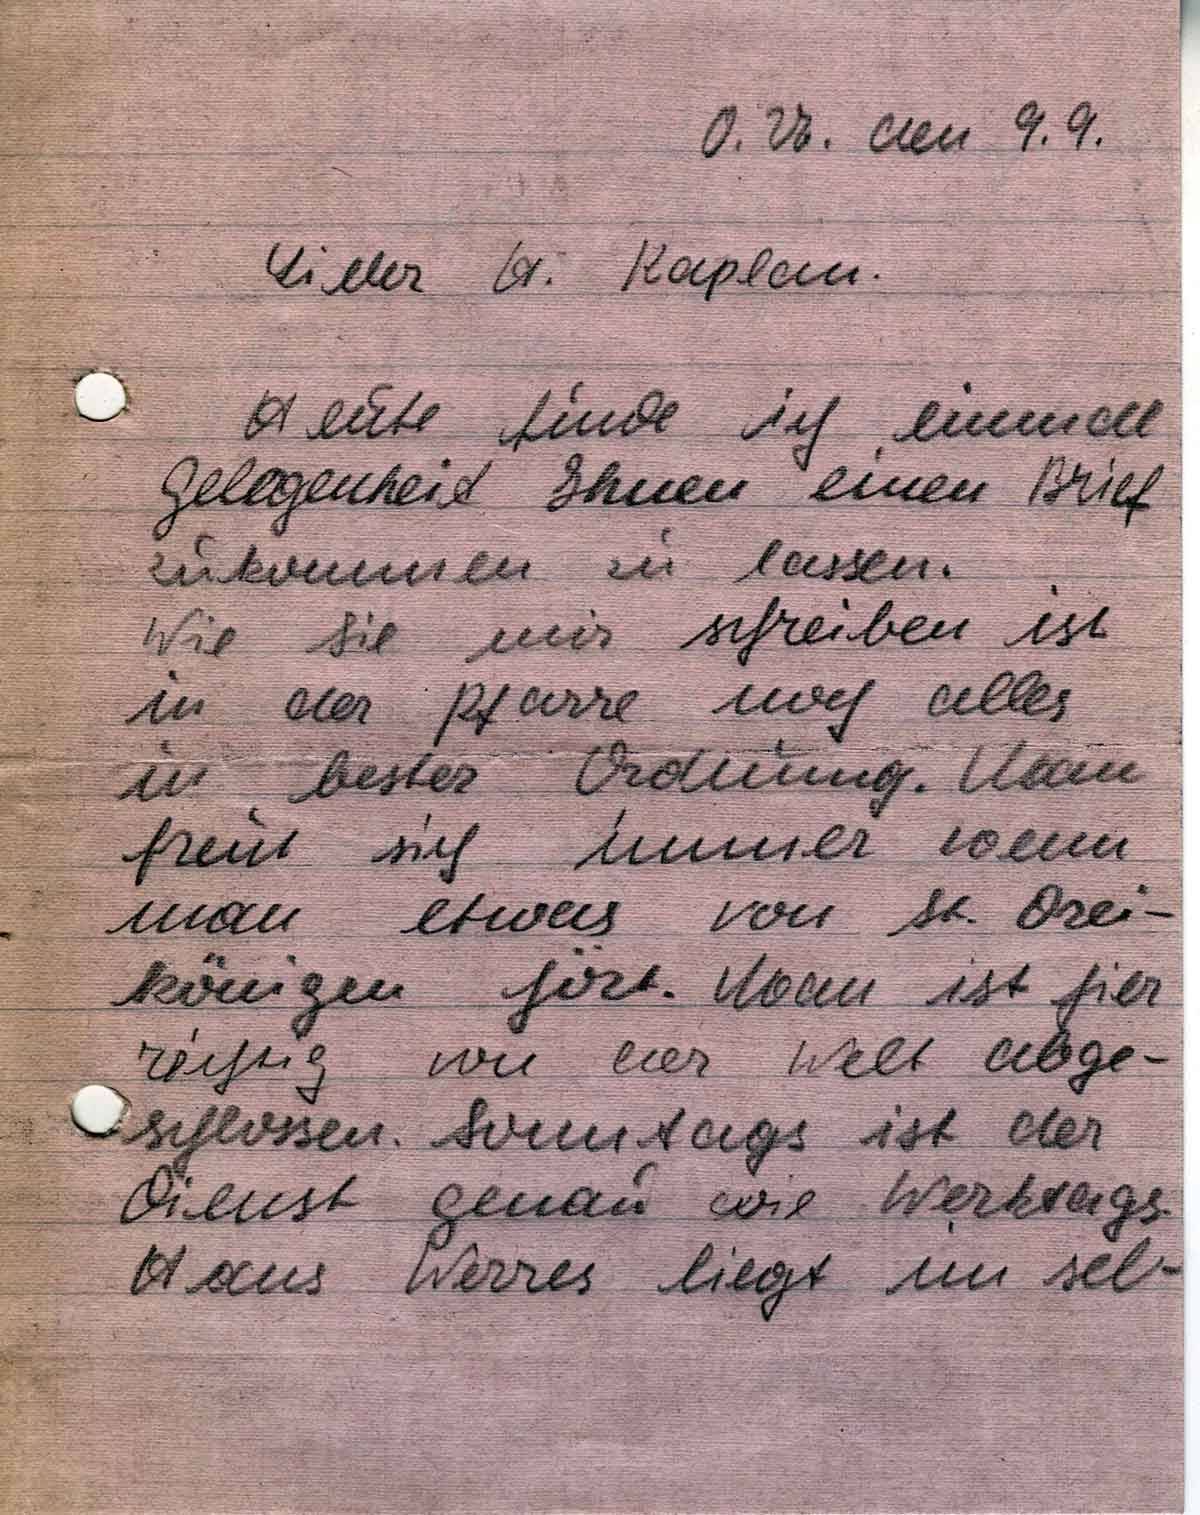 O.U. den 9.9.
Lieber H. Kaplan.
Heute finde ich einmal
Gelegenheit Ihnen einen Brief
zukommen zu lassen.
Wie Sie mir schreiben ist
in der Pfarre noch alles
in bester Ordnung. Man
freut sich immer wenn
man etwas von St. Drei-
königen hört. Man ist hier
richtig von der Welt abge-
schlossen. Sonntags ist der
Dienst genau wie Werktags.
Hans Werres liegt im sel-